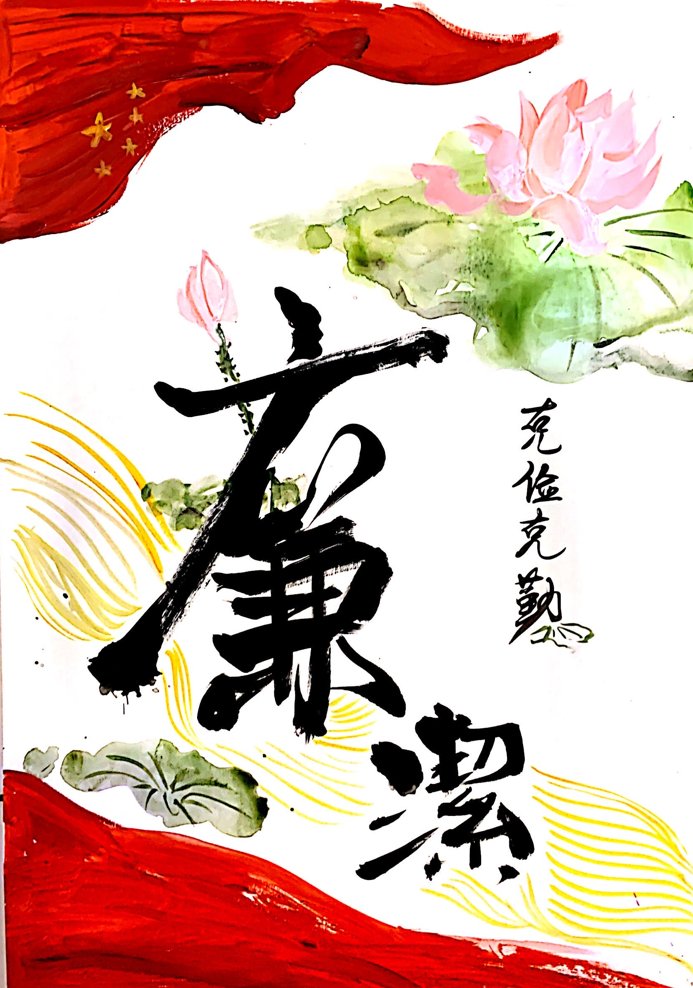 廉潔
克俭克勤